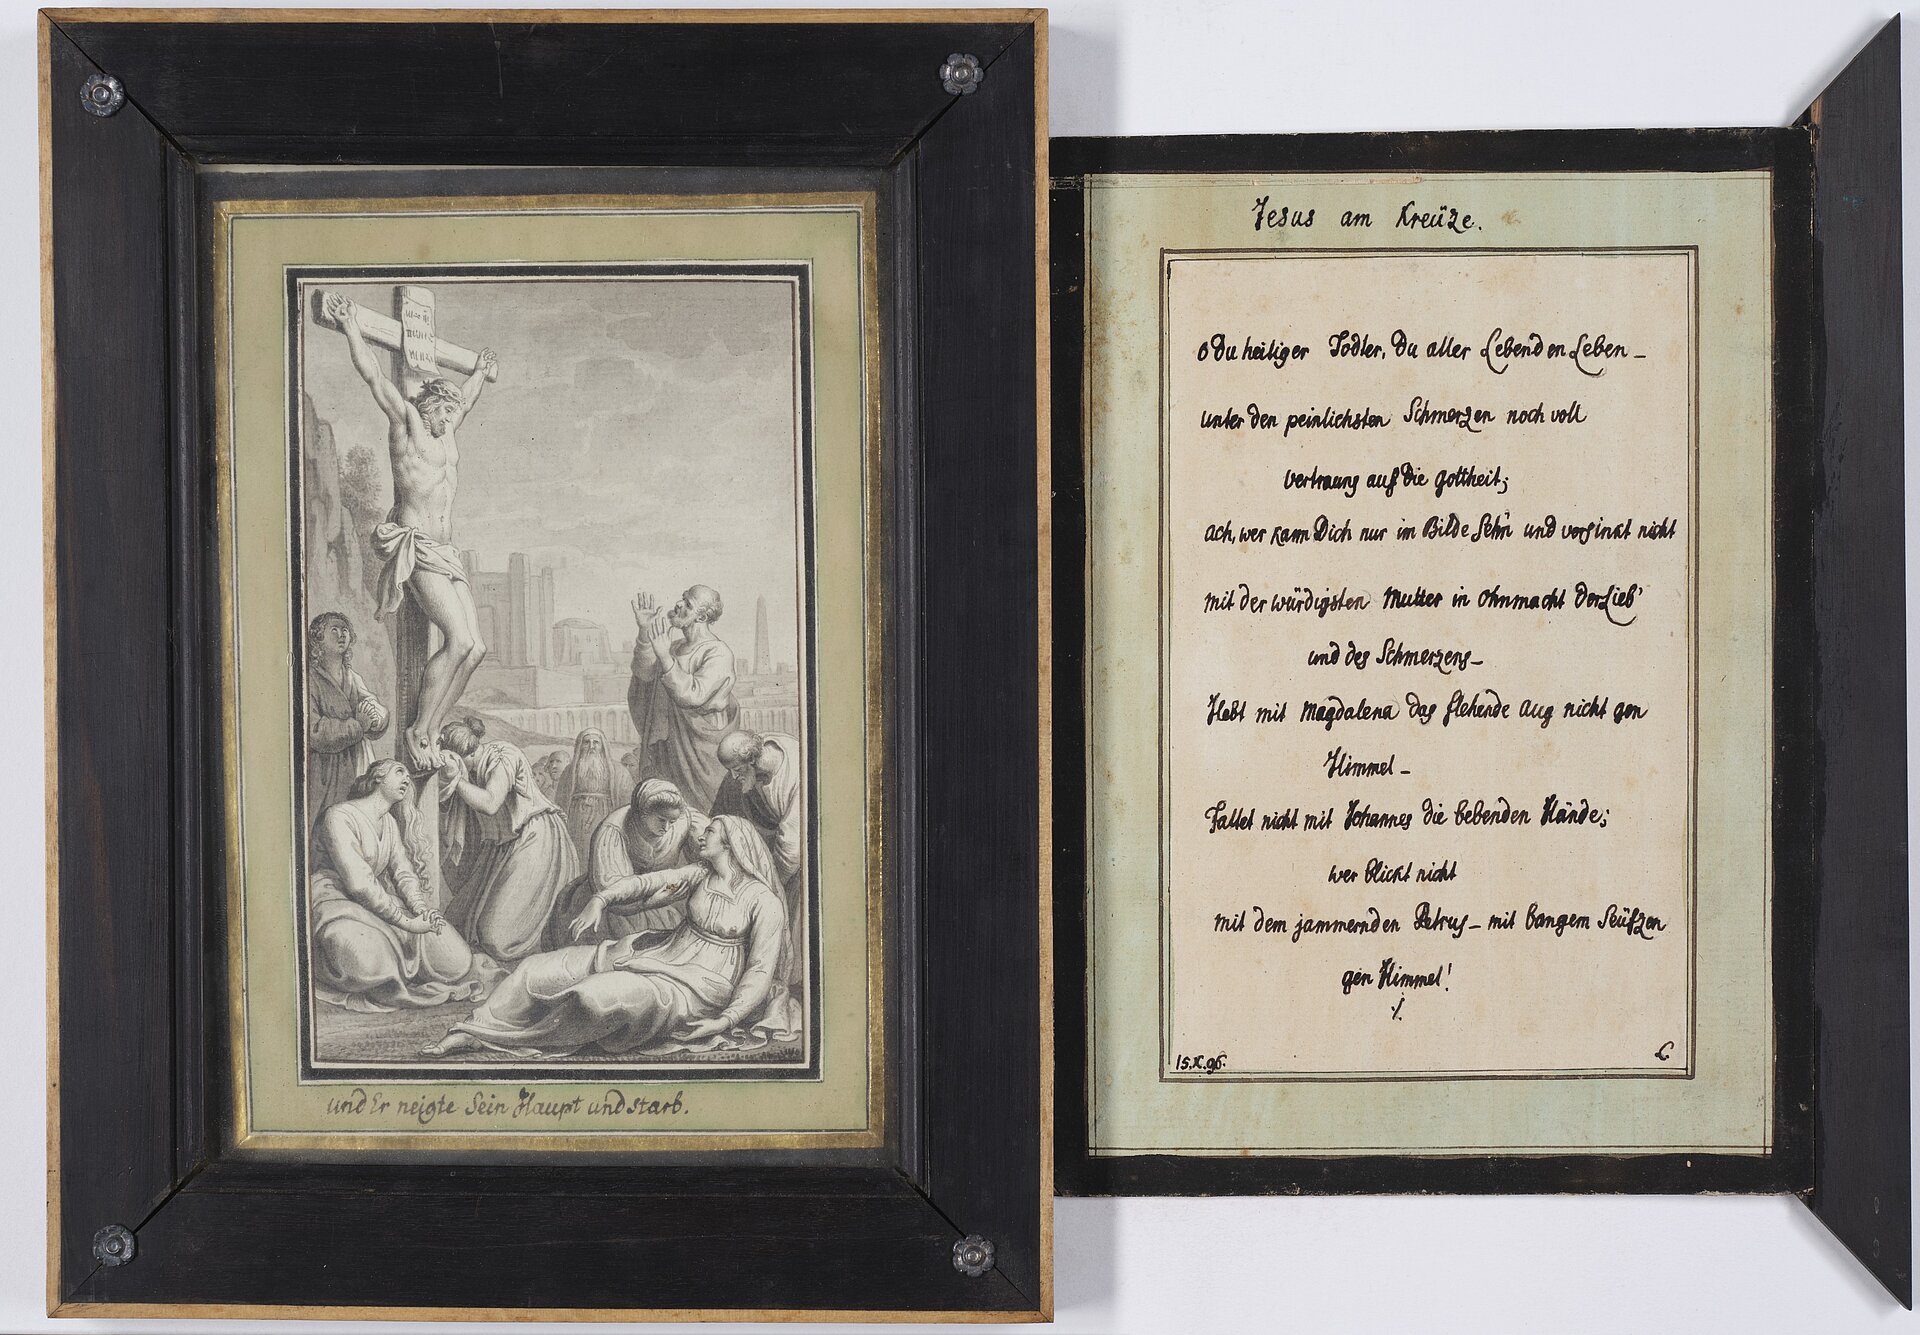 und Er neigte Sein Haupt und starb.
Jesus am Kreüze.
o Du heiliger Todter, Du aller Lebenden Leben –
unter den peinlichsten Schmerzen noch voll
vertraung auf die gottheit;
ach, wer kann Dich nur im Bilde Sehn und versinkt nicht
mit der würdigsten Mutter in ohnmacht der Lieb'
und des Schmerzens –
Hebt mit Magdalena das flehende Aug nicht gen
Himmel –
Faltet nicht mit Johannes die bebenden Hände;
wer blickt nicht
mit dem jammernden Petrus – mit bangem Seüfzen
gen Himmel!
./.
15.X.96.